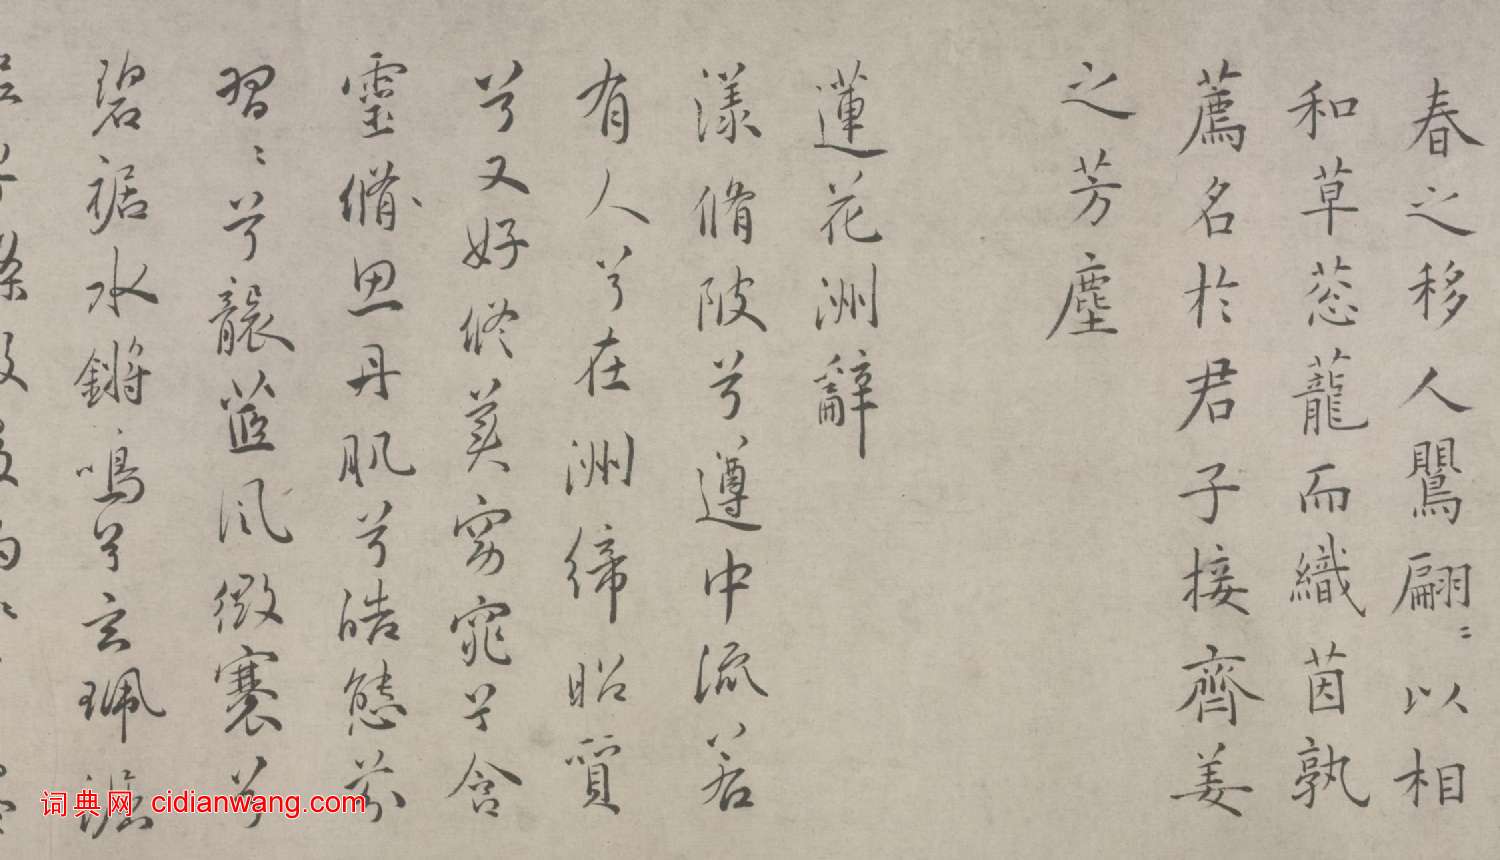 春之移人鷪翩〻以相
和草蒕蘢而織茵孰
薦名於君子接齊姜
之芳塵
蓮花洲辭
漾脩陂兮遵中流若
有人兮在洲締昭質
兮又好修美窈窕兮含
靈脩思丹肌兮皓態芬
習〻兮襲蓝風微褰兮
碧裾水鏘鳴兮玄珮
词典网 cidianwang.com